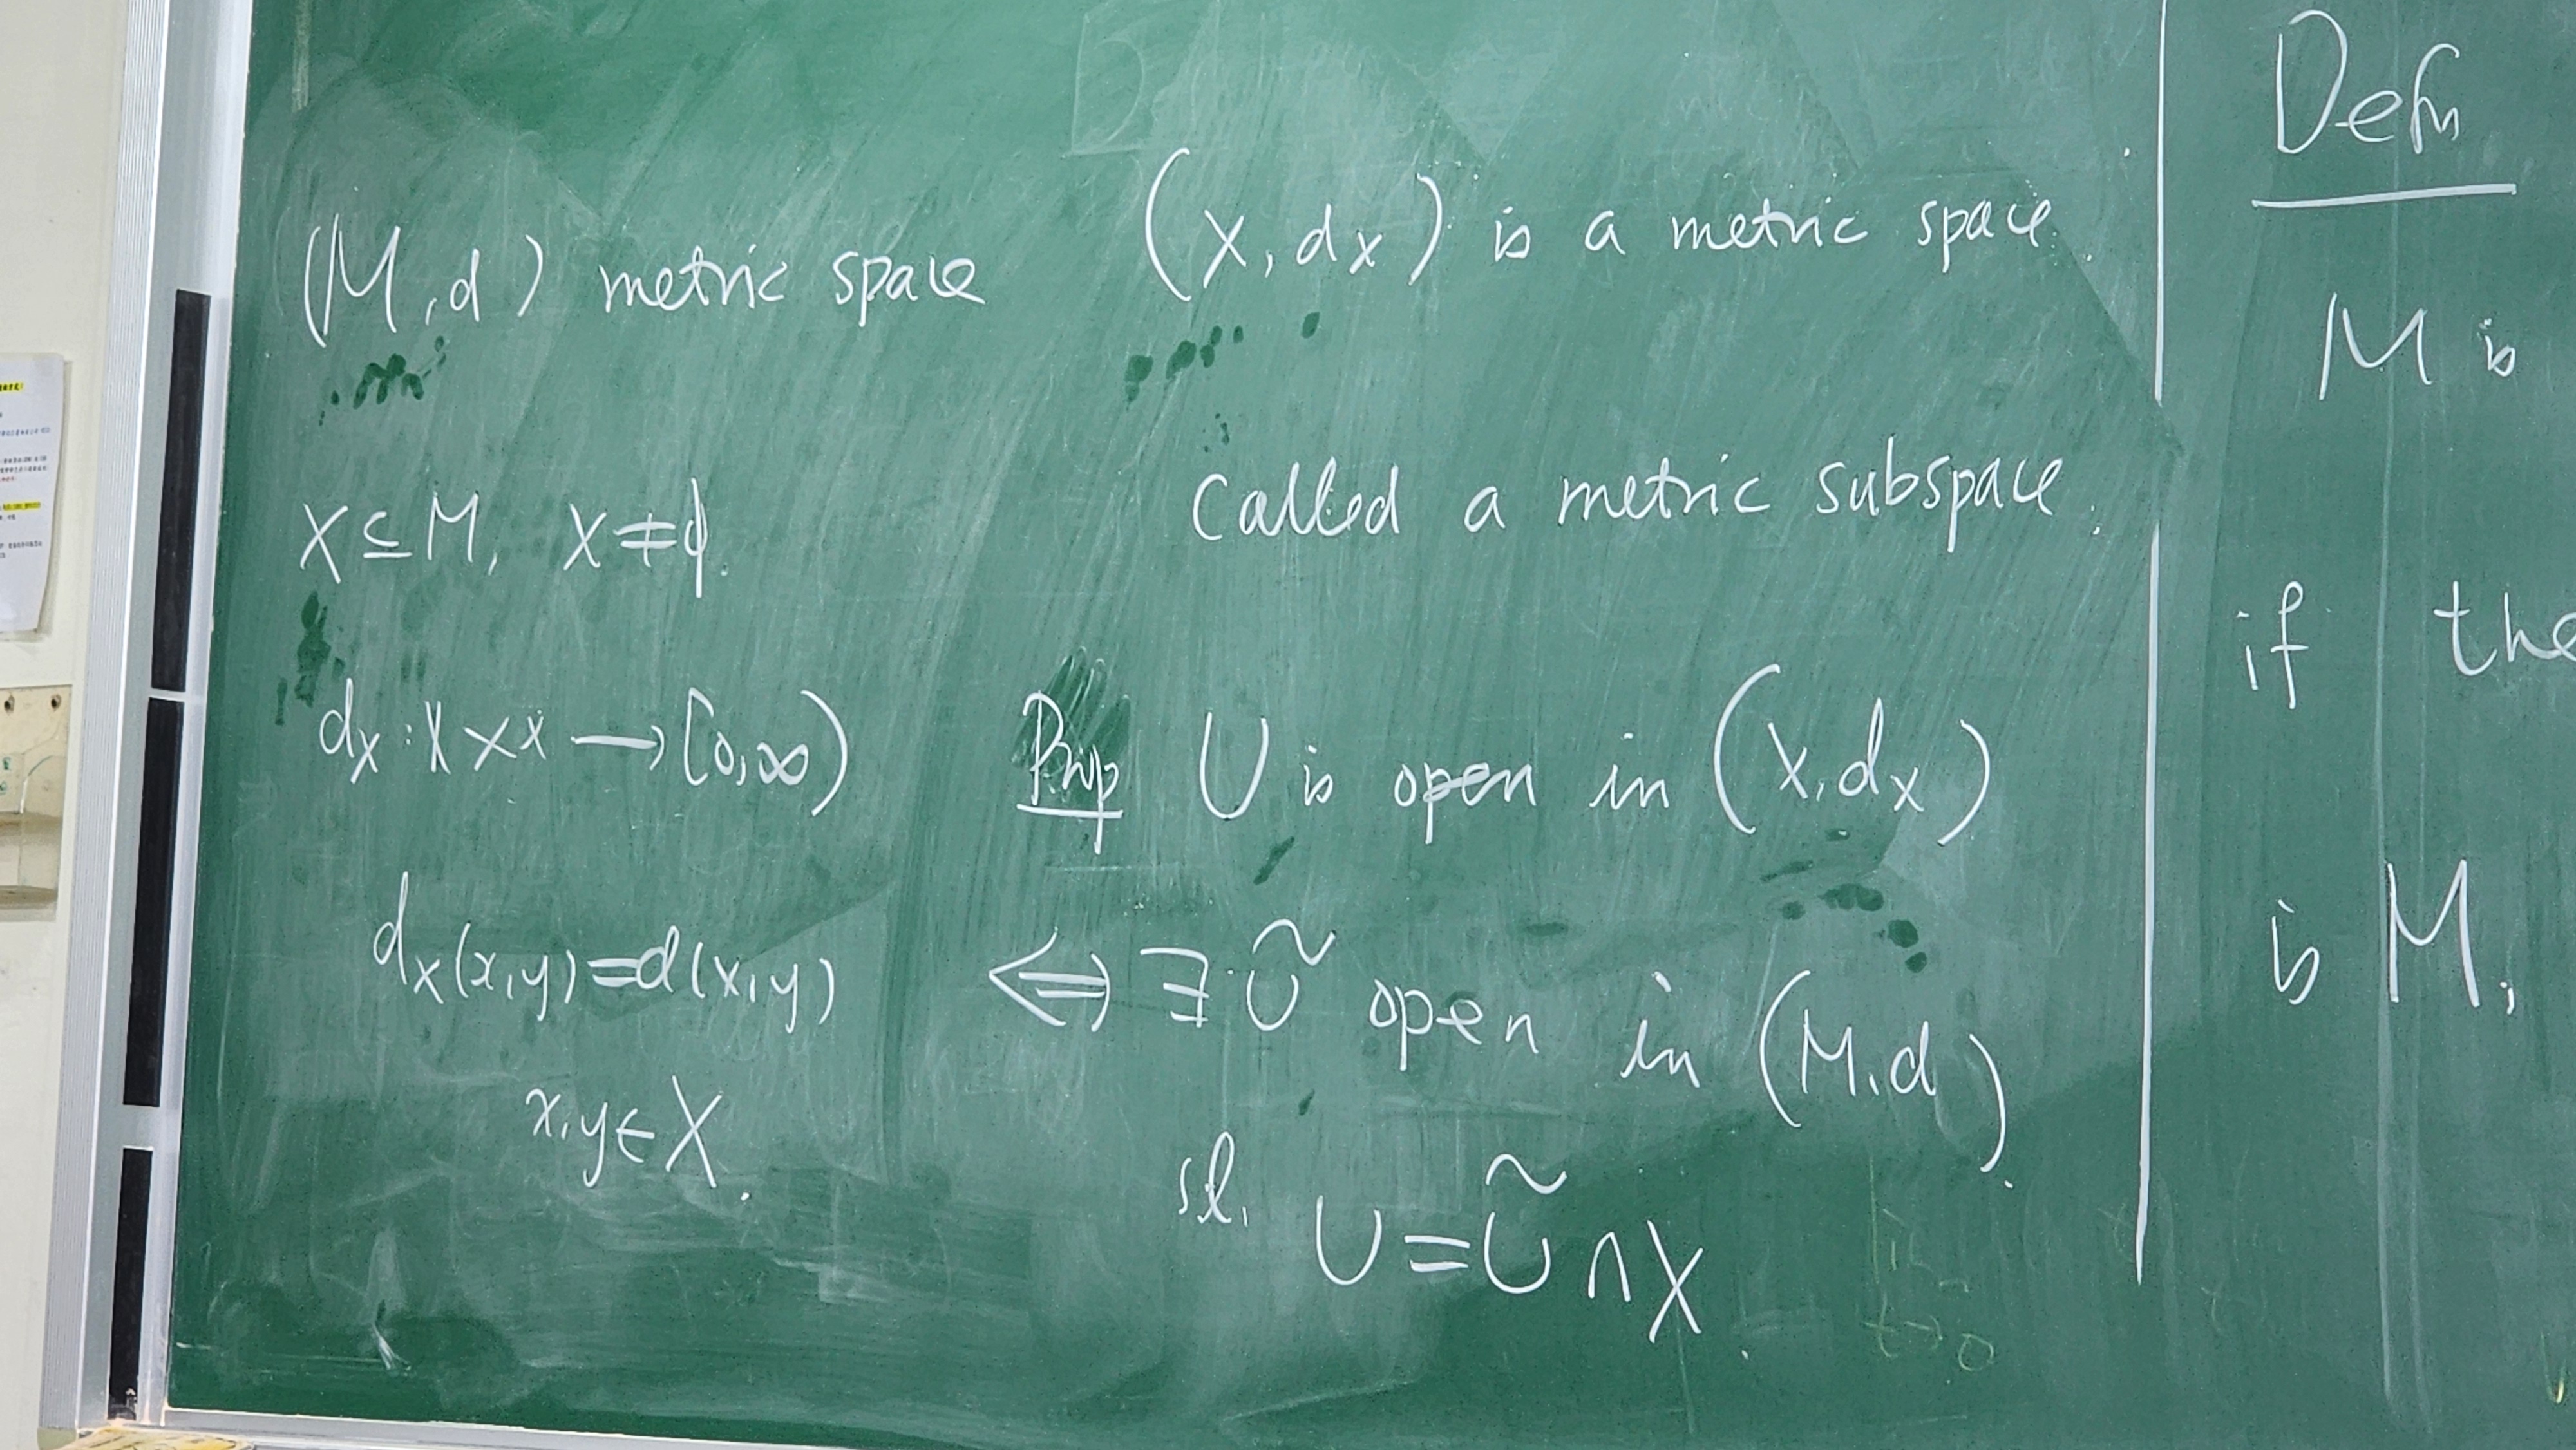 (M, d) metric space
X ⊆ M, X ≠ ϕ.
d_X : X × X → [0, ∞)
d_X(x, y) = d(x, y)
x, y ∈ X.
(X, d_X) is a metric space.
Called a metric subspace.
Prop U is open in (X, d_X)
⇔ ∃ Ũ open in (M, d).
st. U = Ũ ∩ X.
Defn
M is
if the
is M.